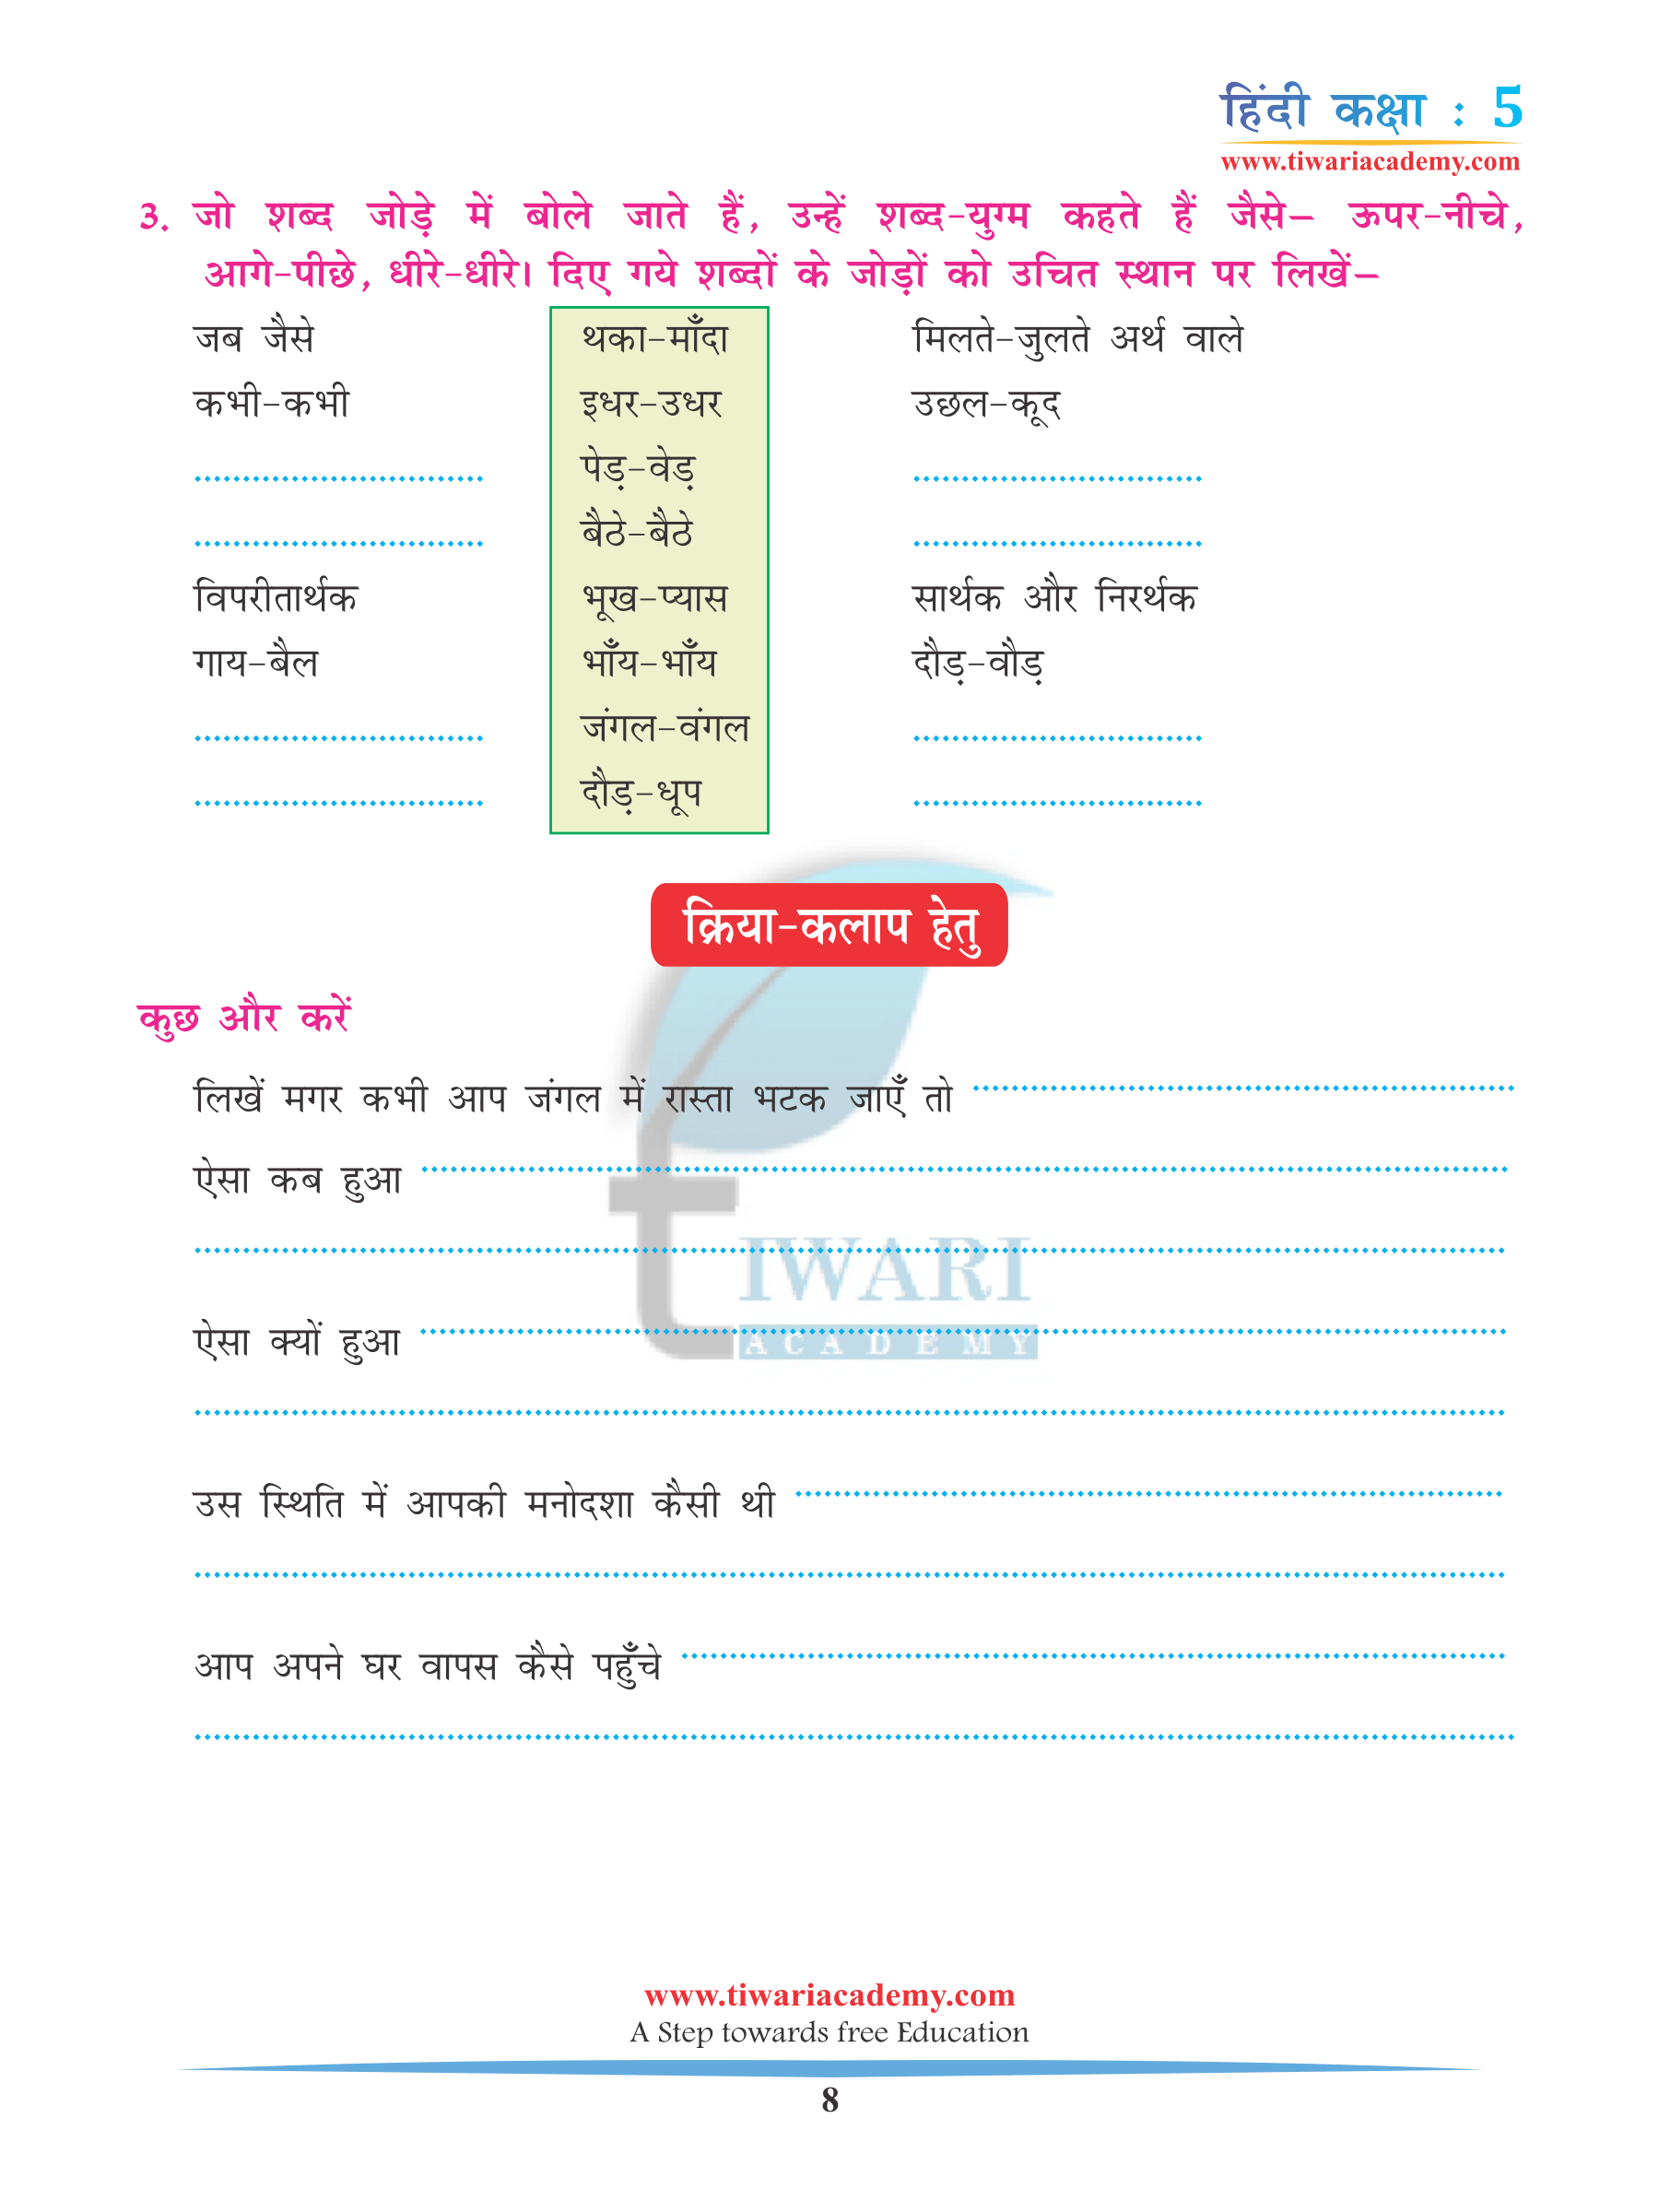 हिंदी कक्षा : 5
www.tiwariacademy.com
3. जो शब्द जोड़े में बोले जाते हैं, उन्हें शब्द-युग्म कहते हैं जैसे– ऊपर-नीचे,
आगे-पीछे, धीरे-धीरे। दिए गये शब्दों के जोड़ों को उचित स्थान पर लिखें–
जब जैसे थका-माँदा मिलते-जुलते अर्थ वाले
कभी-कभी इधर-उधर उछल-कूद
पेड़-वेड़
बैठे-बैठे
विपरीतार्थक भूख-प्यास सार्थक और निरर्थक
गाय-बैल भाँय-भाँय दौड़-वौड़
जंगल-वंगल
दौड़-धूप
क्रिया-कलाप हेतु
कुछ और करें
लिखें मगर कभी आप जंगल में रास्ता भटक जाएँ तो
ऐसा कब हुआ
tIWARI
ऐसा क्यों हुआ
ACADEMY
उस स्थिति में आपकी मनोदशा कैसी थी
आप अपने घर वापस कैसे पहुँचे
www.tiwariacademy.com
A Step towards free Education
8